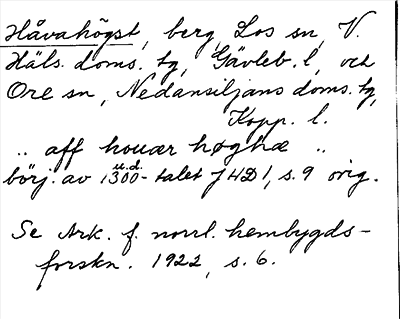 Håvahögst, berg, Los sn, V.
Häls. doms. tg, Gävleb. l, och
Ore sn, Nedansiljans doms. tg,
Kopp. l.
.. aff houær høghæ ..
u.d.
börj. av 1300-talet JHD 1, s. 9 orig.
Se Ark. f. norrl. hembygds-
forskn. 1922, s. 6.